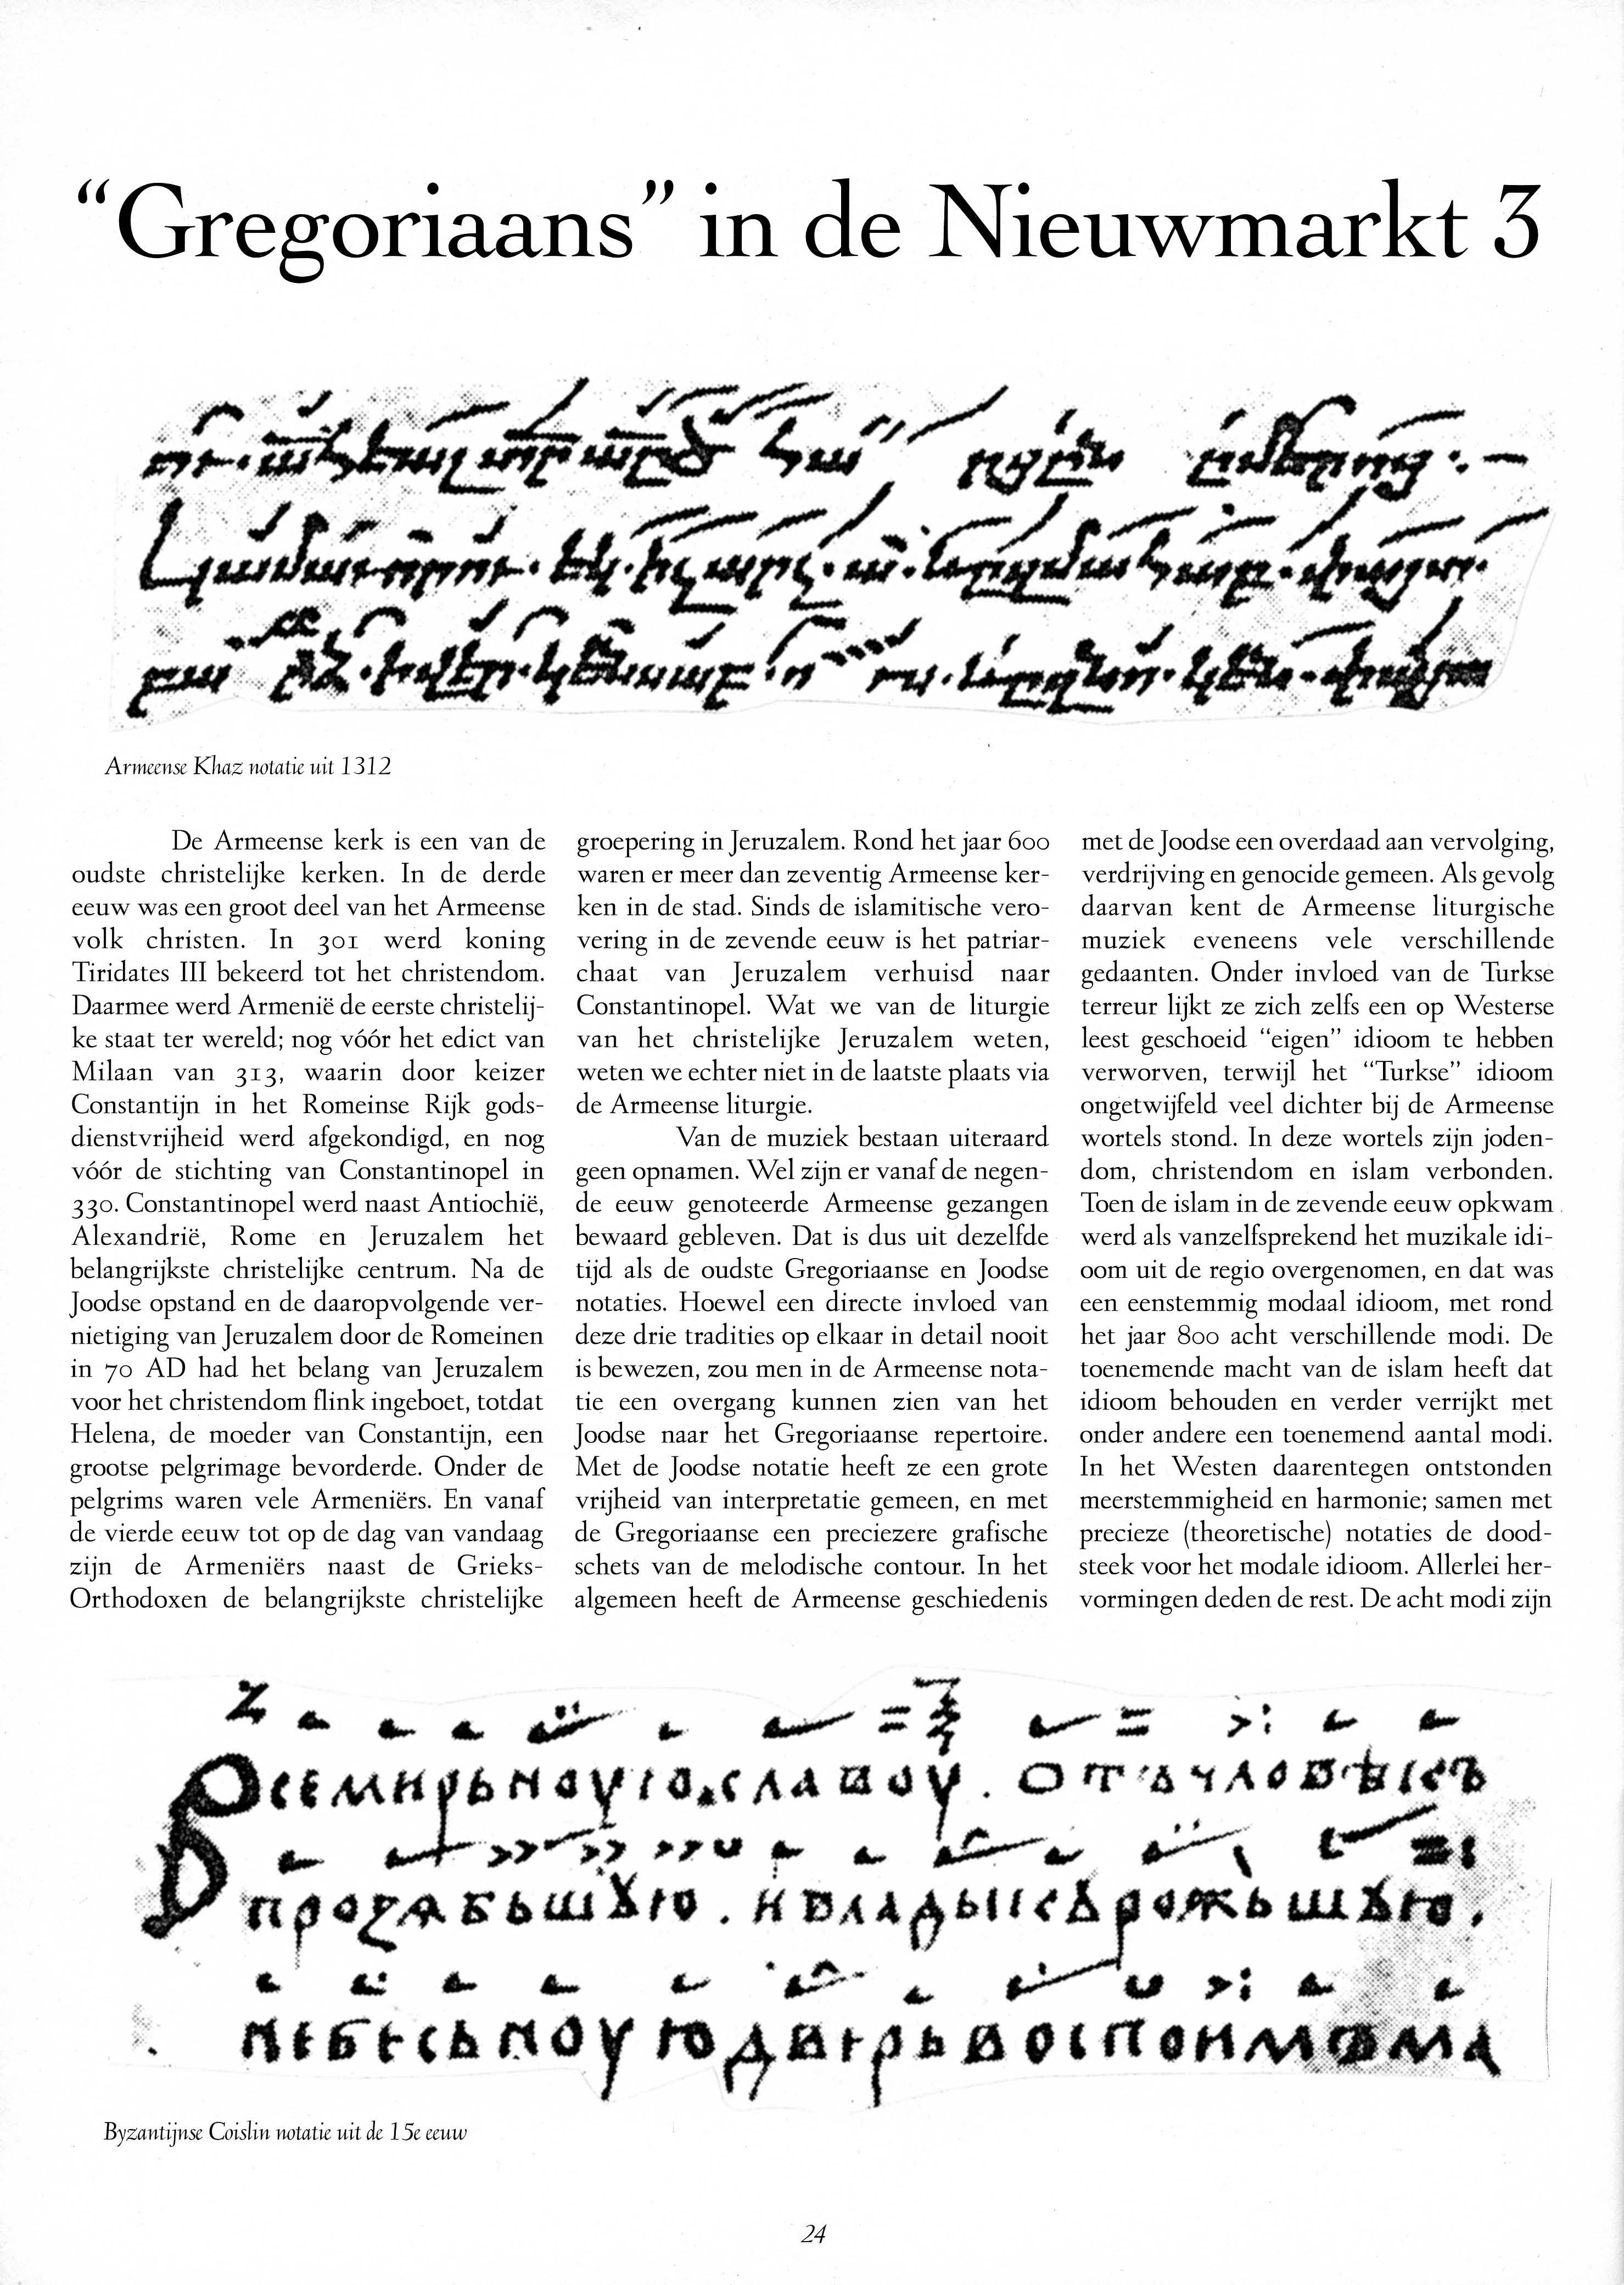 “Gregoriaans” in de Nieuwmarkt 3
Armeense Khaz notatie uit 1312
De Armeense kerk is een van de
oudste christelijke kerken. In de derde
eeuw was een groot deel van het Armeense
volk christen. In 301 werd koning
Tiridates III bekeerd tot het christendom.
Daarmee werd Armenië de eerste christelij-
ke staat ter wereld; nog vóór het edict van
Milaan van 313, waarin door keizer
Constantijn in het Romeinse Rijk gods-
dienstvrijheid werd afgekondigd, en nog
vóór de stichting van Constantinopel in
330. Constantinopel werd naast Antiochië,
Alexandrië, Rome en Jeruzalem het
belangrijkste christelijke centrum. Na de
Joodse opstand en de daaropvolgende ver-
nietiging van Jeruzalem door de Romeinen
in 70 AD had het belang van Jeruzalem
voor het christendom flink ingeboet, totdat
Helena, de moeder van Constantijn, een
grootse pelgrimage bevorderde. Onder de
pelgrims waren vele Armeniërs. En vanaf
de vierde eeuw tot op de dag van vandaag
zijn de Armeniërs naast de Grieks-
Orthodoxen de belangrijkste christelijke
groepering in Jeruzalem. Rond het jaar 600
waren er meer dan zeventig Armeense ker-
ken in de stad. Sinds de islamitische vero-
vering in de zevende eeuw is het patriar-
chaat van Jeruzalem verhuisd naar
Constantinopel. Wat we van de liturgie
van het christelijke Jeruzalem weten,
weten we echter niet in de laatste plaats via
de Armeense liturgie.
Van de muziek bestaan uiteraard
geen opnamen. Wel zijn er vanaf de negen-
de eeuw genoteerde Armeense gezangen
bewaard gebleven. Dat is dus uit dezelfde
tijd als de oudste Gregoriaanse en Joodse
notaties. Hoewel een directe invloed van
deze drie tradities op elkaar in detail nooit
is bewezen, zou men in de Armeense nota-
tie een overgang kunnen zien van het
Joodse naar het Gregoriaanse repertoire.
Met de Joodse notatie heeft ze een grote
vrijheid van interpretatie gemeen, en met
de Gregoriaanse een preciezere grafische
schets van de melodische contour. In het
algemeen heeft de Armeense geschiedenis
met de Joodse een overdaad aan vervolging,
verdrijving en genocide gemeen. Als gevolg
daarvan kent de Armeense liturgische
muziek eveneens vele verschillende
gedaanten. Onder invloed van de Turkse
terreur lijkt ze zich zelfs een op Westerse
leest geschoeid “eigen” idioom te hebben
verworven, terwijl het “Turkse” idioom
ongetwijfeld veel dichter bij de Armeense
wortels stond. In deze wortels zijn joden-
dom, christendom en islam verbonden.
Toen de islam in de zevende eeuw opkwam
werd als vanzelfsprekend het muzikale idi-
oom uit de regio overgenomen, en dat was
een eenstemmig modaal idioom, met rond
het jaar 800 acht verschillende modi. De
toenemende macht van de islam heeft dat
idioom behouden en verder verrijkt met
onder andere een toenemend aantal modi.
In het Westen daarentegen ontstonden
meerstemmigheid en harmonie; samen met
precieze (theoretische) notaties de dood-
steek voor het modale idioom. Allerlei her-
vormingen deden de rest. De acht modi zijn
славоу . отъчловѣкъ
Byzantijnse Coislin notatie uit de 15e eeuw
24